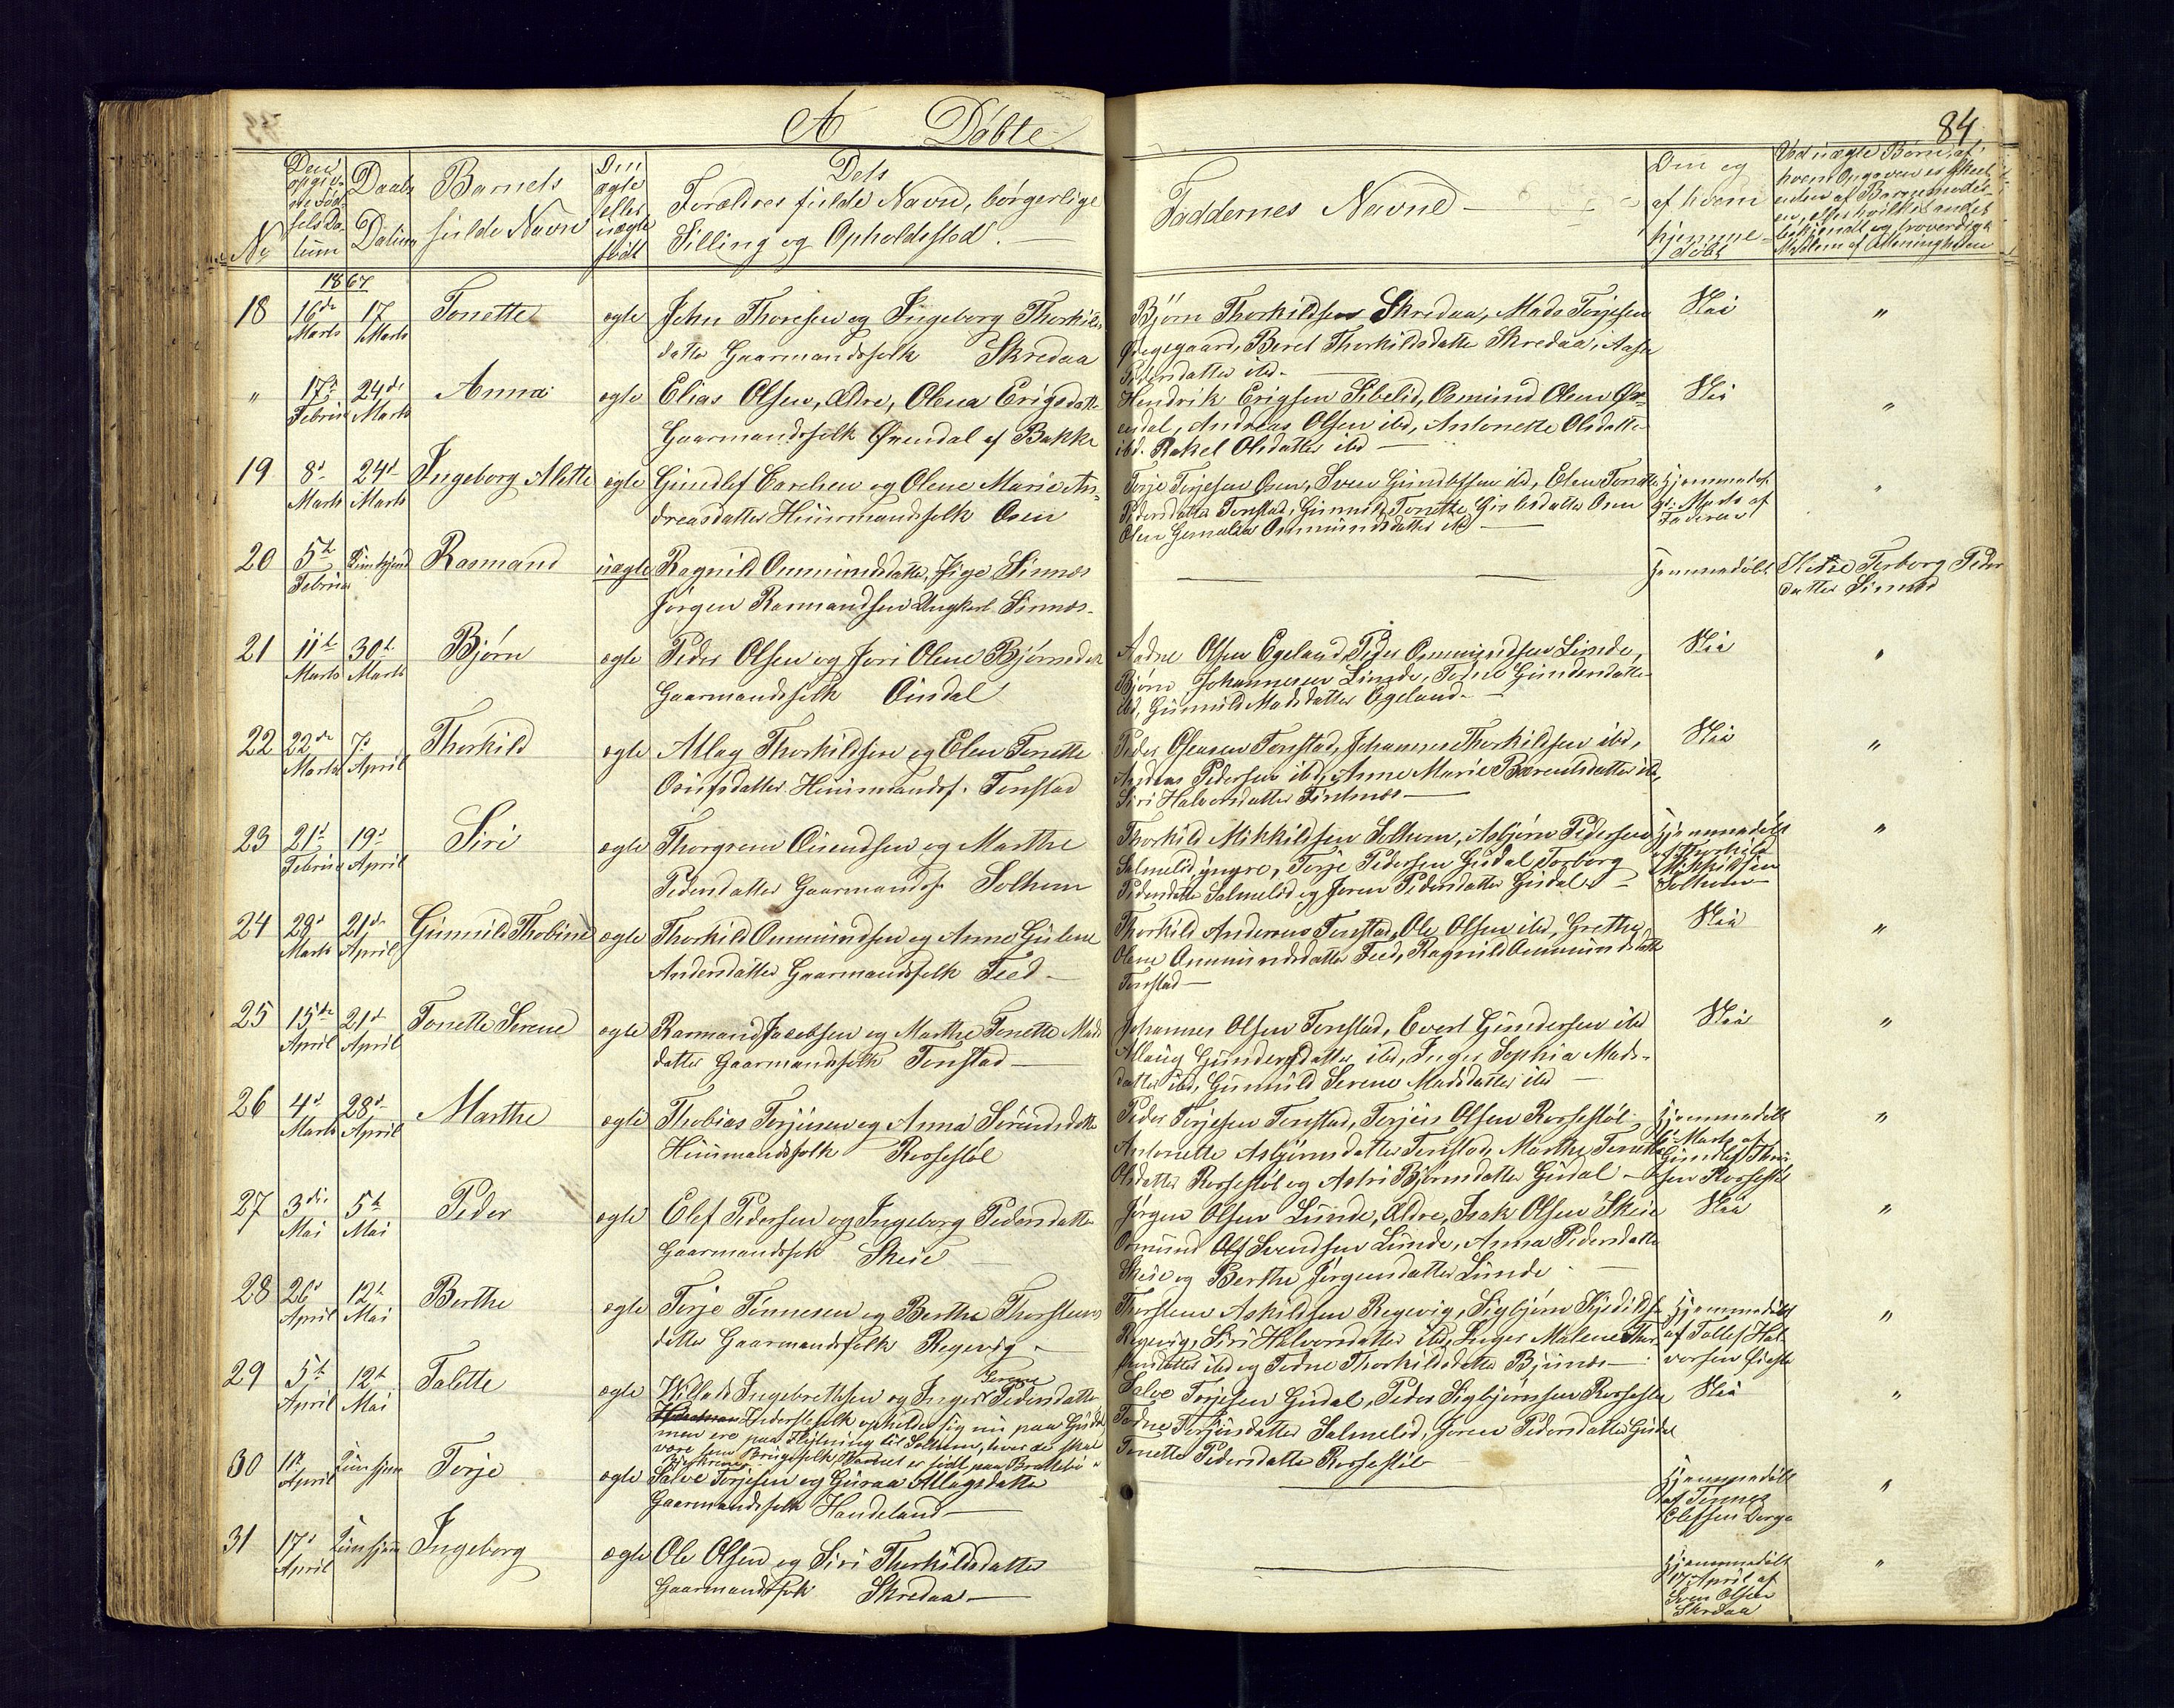 A Döbte
84
No
Den opgivne Födselsdatum
Daabs Datum
Barnets fulde Navn
Om ægte eller uægte födt
Dets Forældres fulde Navn, börgerlige Stilling og Opholdssted.
Faddernes Navne
Om og af hvem hjemmedöbt
Ved uægte Börn, af hvem Opgaven er skeet enten af Barnemoderen, eller hvilket andet bekjendt og troværdigt Medlem af Menigheden
1867
18 16de Marts 17 Marts Tonette ægte John Thoresen og Ingeborg Thorkils-
datter Gaarmandsfolk Skredaa
Björn Thorkildsen Skredaa, Mads Torjesen
Ödegaard, Beret Thorkildsdatter Skredaa, Aase
Pedersdatter ibd.
Nei "
" 17de Februar 24de Marts Anna ægte Elias Olsen, Ældre, Olena Erigsdatter
Gaarmandsfolk Örendal af Bakke
Hendrik Erigsen Sibelid, Osmund Olsen Ör-
endal, Andreas Olsen ibd, Antonette Olsdatter
ibd. Rakel Olsdatter ibd
Nei "
19 8d Marts 24d Marts Ingeborg Alette ægte Gundlef Carelsen og Olene Marie An-
dreasdatter Huusmandsfolk Osen
Torje Torjesen Osen, Sven Gundlefsen ibd, Elen Tonette
Pedersdatter Tonstad, Gunnild Tonette Osen
Elen Ommundsdatter ibd
Hjemmedöbt
9d Marts af
Faderen
"
20 5te Februar Kun hjem Rasmand uægte Ragnild Ommundsdatter, Pige Sinnes
Jörgen Rasmandsen Ungkarl Sinnes.
Hjemmedöbt
Terborg Peders
datter Sinnes
21 11te Marts 30te Marts Björn ægte Peder Olsen og Jori Olene Björnsdatter
Gaarmandsfolk Ousdal
Aadne Olsen Egeland, Peder Ommundsen Lunde,
Björn Johannesen Lunde, Todne Gundersdatter
ibd, Gunnild Madsdatter Egeland.
Nei "
22 22de Marts 7de April Thorkild ægte Atlag Thorkildsen og Elen Tonette
Osufsdatter. Huusmandsf. Tonstad
Peder Olsen Tonstad, Johannes Thorkildsen ibd,
Andreas Pedersen ibd, Anne Marie Barentsdatter ibd,
Siri Halvorsdatter Fintnes
Nei "
23 21d Februar 19d April Siri ægte Thorgrem Ouendsen og Marthe
Pedersdatter Gaarmandsf. Solhom
Thorkild Mikkildsen Solhom, Asbjörn Pedersen
Salmelid, yngre, Torje Pedersen Gusdal Torborg
Pedersdatter Salmelid og Joren Pedersdatter Gusdal.
Hjemmedöbt
af Thorkild
Mikkildsen
Solhom
"
24 29d Marts 21de April Gunnild Thobine ægte Thorkild Ommundsen og Anne Gulene
Andersdatter Gaarmandsfolk Feed
Thorkild Andersen Tonstad, Ole Olsen ibd, Grethe
Olene Ommundsdatter Feed, Ragnild Ommundsdatter
Tonstad
Nei "
25 15de April 21d April Tonette Serene ægte Rasmand Jacobsen og Marthe Tonette Mads
datter Gaarmandsfolk Tonstad
Johannes Olsen Tonstad, Evert Gundersen ibd
Atlaug Gundersdatter ibd, Inger Sophia Mads-
datter ibd, Gunnuld Serene Madsdatter ibd
Nei "
26 4d Marts 28d April Marthe ægte Thobias Torjusen og Anna Sörensdatter
Huusmandsfolk Rossestöl
Peder Torjesen Tonstad, Torjus Olsen Rossestöl
Antonette Asbjörnsdatter Tonstad, Marthe Tonette
Olsdatter Rossestöl og Astri Björnsdatter Gusdal
Hjemmedöbt
Marts af
Gundlef Thori-
sen Rossestöl
"
27 3die Mai 5te Mai Peder ægte Olef Pedersen og Ingeborg Pedersdatter
Gaarmandsfolk Skeie
Jörgen Olsen Lunde, Ældre, Isak Olsen Skeie
Osmund Svendsen Lunde, Anna Pedersdatter
Skeie og Berthe Jörgensdatter Lunde
Nei "
28 26d April 12te Mai Berthe ægte Torje Tönnesen og Berthe Thorstens
datter Gaarmandsfolk Regevig
Thorsten Askildsen Regevig, Sigbjörn
Regevig, Siri Halvorsdatter ibd, Inger Malene Thor-
stensdatter ibd og Todne Thorkildsdatter Bjunes
Hjemmedöbt
af Tollef Hal-
vorsen
"
29 5te April 12te Mai Talette ægte Willads Ingebrethsen og Inger Serene Pedersdatter
Inderstefolk opholder sig nu paa Gusdal,
men ere paa Flytning til Solhom, hvor de skal
være som Brugsfolk Barnet er födt paa Brattebö
Salve Torjesen Gusdal, Peder Sigbjörnsen Rossestöl
Todne Torjusdatter Salmelid, Joren Pedersdatter Gusdal
Tonette Pedersdatter Rossestöl
Nei "
30 1d April Kun hjem Torje ægte Salve Torjesen og Guroa Atlagsdatter
Gaarmandsfolk Handeland
Hjemmedöbt
af Tönnes
Olefsen Dorge
"
31 17d April Kun hjem Ingeborg ægte Ole Olsen og Siri Thorkildsdatter
Gaarmandsfolk Skredaa
Hjemmedöbt
17 April af
Sven Olsen
Skredaa
"